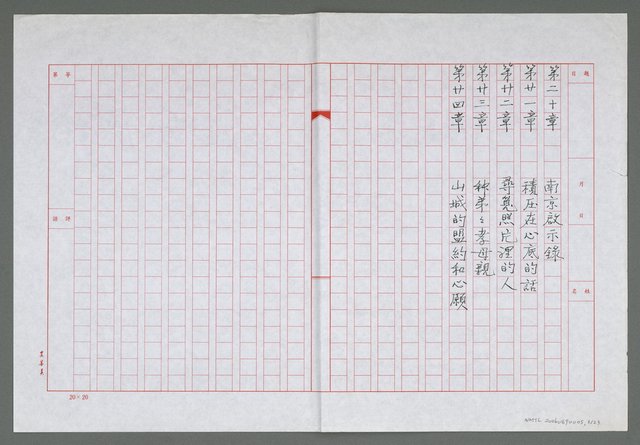 題目
月
日
姓名
第二十章 南京啟示錄
第廿一章 積压在心底的話
第廿二章 尋覓照片裡的人
第廿三章 和弟々孝母親
第廿四章 山城的盟約和心願
20×20